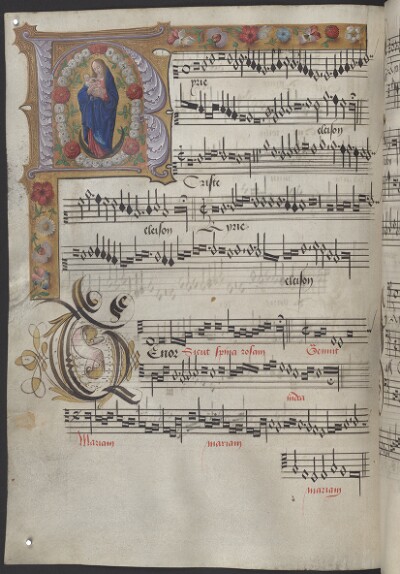 Kyrie
eleison
Criste
eleison Kyrie
eleison
Tenor Sicut spina rosam Genuit
iudea
Mariam mariam
mariam